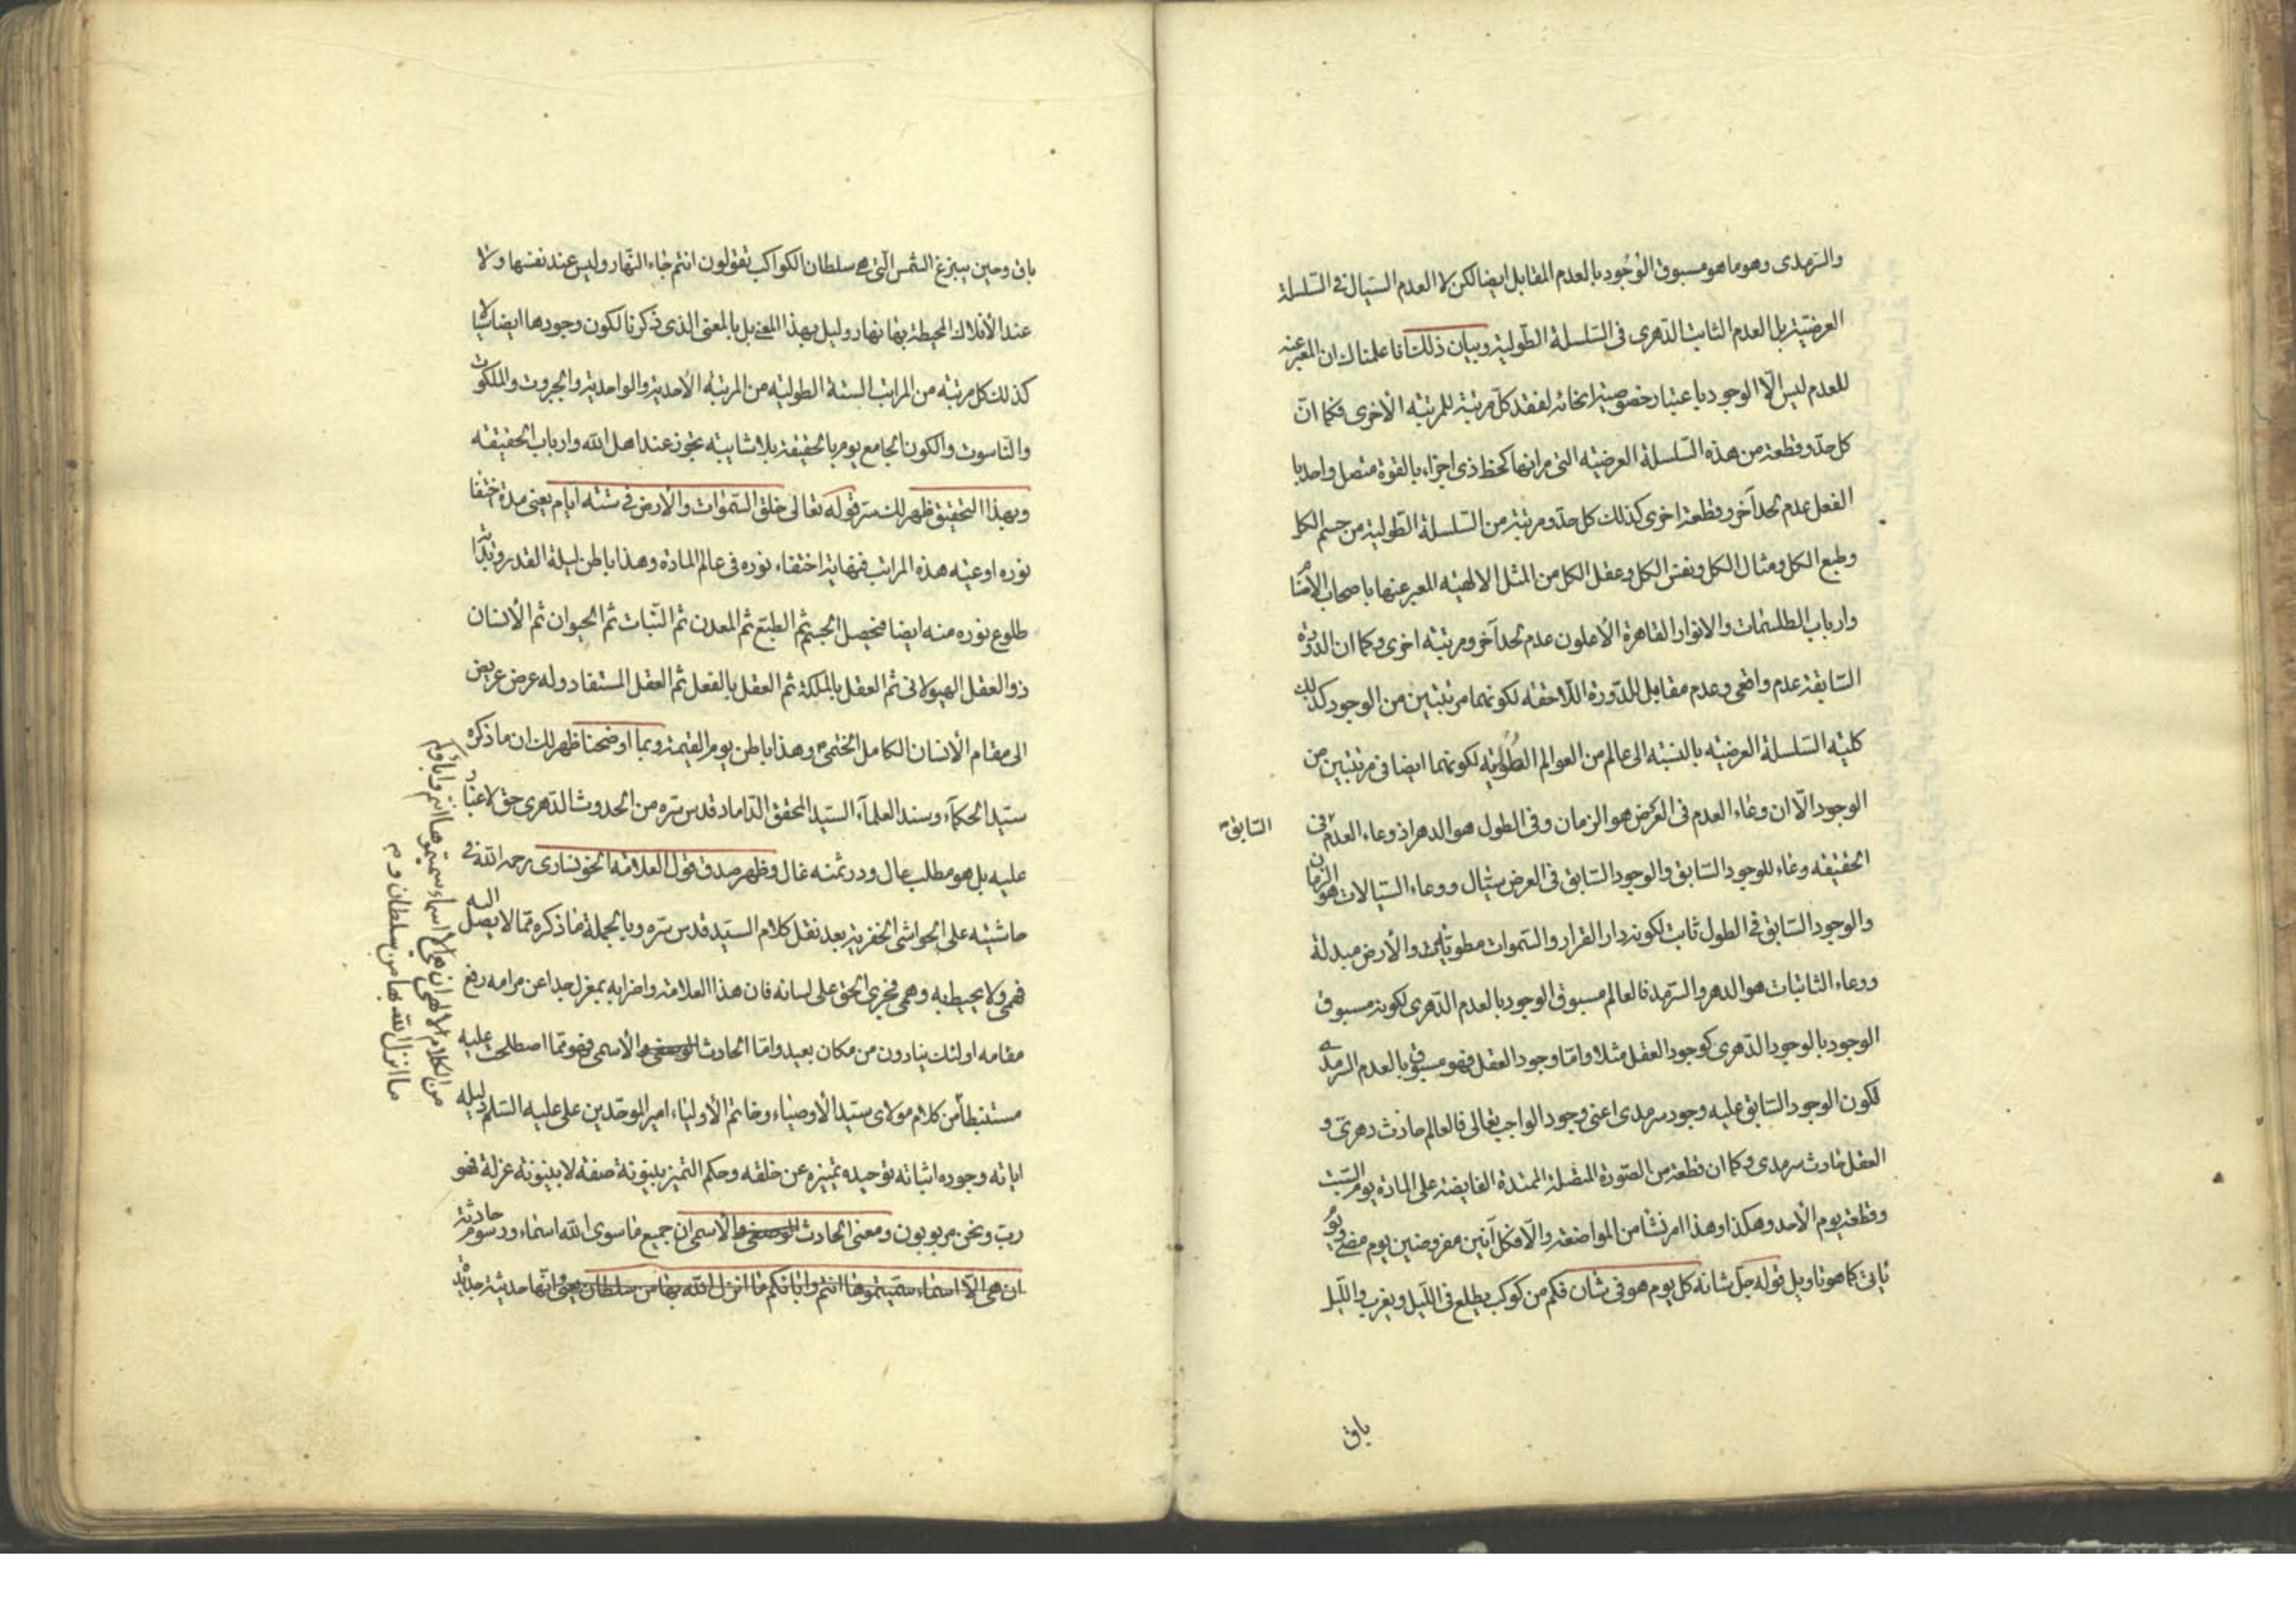 والسرمدى وهو ما هو مسبوق الوجود بالعدم المقابل ايضا لكن لا العدم السيال فى السلسلة
العرضية بل العدم الثابت الدهرى فى السلسلة الطولية وبيان ذلك انا علمناك ان المعبر عنه
للعدم ليس الّا الوجود باعتبار خصوصية انحائه لفقد كل مرتبة للمرتبه الاخرى فكما انّ
كل حدّ وقطعة من هذه السلسلة العرضيه التى مراتبها كخط ذى اجزاء بالقوة متصل واحد با
الفعل عدم لحد آخر وقطعة اخرى كذلك كل حدّ ومرتبة من السلسلة الطولية من جسم الكل
وطبع الكل ومثال الكل ونفس الكل وعقل الكل من المثل الالهيه المعبر عنها باصحاب الاصنام
وارباب الطلسمات والانوار القاهرة الأعلون عدم لحد آخر ومرتبه اخرى وكما ان الدورة
السابقة عدم واقعى وعدم مقابل للدورة اللاحقه لكونهما مرتبتين من الوجود كذلك
كليه السلسلة العرضيه بالنسبة الى عالم من العوالم الطوليه لكونهما ايضا فى مرتبتين من
الوجود الّا ان وعاء العدم فى العرض هو الزمان وفى الطول هو الدهر اذ وعاء العدم فى
السابق
الحقيقه وعاء للوجود السابق والوجود السابق فى العرض سيّال ووعاء السيالات هو الزمان
والوجود السابق فى الطول ثابت لكونه دار القرار والسموات مطويات والأرض مبدلة
ووعاء الثابتات هو الدهر والسرمد فالعالم مسبوق الوجود بالعدم الدهرى لكونه مسبوق
الوجود بالوجود الدهرى كوجود العقل مثلا وامّا وجود العقل فهو مسبوق بالعدم السرمدى
لكون الوجود السابق عليه وجود سرمدى اعنى وجود الواجب تعالى فالعالم حادث دهرىّ و
العقل حادث سرمدى وكما ان قطعة من الصورة المتصلة الممتدة الفايضة على المادة يوم السبت
وقطعة يوم الأحد وهكذا وهذا امر نشا من المواضعة والّا فكل آنين مفروضين يوم مضى ويوم
ياتى كما هو تاويل قوله جل شانه كل يوم هو فى شان فكم من كوكب يطلع فى الليل ويغرب والليل
باق
باق وحين يبزغ الشمس التى هى سلطان الكواكب تقولون انتم جاء النهار وليس عند نفسها ولا
عند الأفلاك المحيطة بها نهار وليل بهذا المعنى بل بالمعنى الذى ذكرنا لكون وجودها ايضا سيالا
كذلك كل مرتبه من المراتب الستة الطوليه من المرتبه الأحدية والواحدية والجبروت والملكوت
والناسوت والكون الجامع يوم بالحقيقة بلا شايبه تجوز عند اهل الله وارباب الحقيقه
وبهذا التحقيق ظهر لك سرّ قوله تعالى خلق السموات والأرض فى ستة ايام يعنى مدة اختفاء
نوره اوعيه هذه المراتب فنهاية اختفاء نوره فى عالم المادة وهذا باطن ليلة القدر
طلوع نوره منه ايضا فيحصل الجسم ثم الطبع ثم المعدن ثم النبات ثم الحيوان ثم الأنسان
ذو العقل الهيولانى ثم العقل بالملكة ثم العقل بالفعل ثم العقل المستفاد وله عرض عريض
الى مقام الأنسان الكامل الختمى وهذا باطن يوم القيمة وبما اوضحنا ظهر لك ان ما ذكره
سيد الحكماء وسند العلماء السيد المحقق الداماد قدس سره من الحدوث الدهرى حق لا غبار
عليه بل هو مطلب عال ودر ثمنه غال وظهر صدق قول العلامه الخونسارى رحمه الله فى
حاشيته على الحواشى الخفرية بعد نقل كلام السيد قدس سره وبالجملة ما ذكره ممّا لا يصل اليه
فهمى ولا يحيط به وهمى فجرى الحق على لسانه فان هذا العلامة واضرابه بمعزل جدا عن مرامه رفع
مقامه اولئك ينادون من مكان بعيد وامّا الحادث الأسمى فهو ممّا اصطلحت عليه
مستنبطا من كلام مولاى سيد الأوصياء وخاتم الأولياء امير الموحدين على عليه السلم دليله
اياته وجوده اثباته توحيده تميزه عن خلقه وحكم التميز بينونة صفة لا بينونة عزلة فهو
ربّ ونحن مربوبون ومعنى الحادث الأسمى ان جميع ما سوى الله اسماء ورسوم حادثة
ان هى الّا اسماء سميتموها انتم واباؤكم ما انزل الله بها من سلطان يعنى انها حديثة جديدة
من الكلام الالهى ان هى الا اسماء سميتموها انتم واباؤكم
ما انزل الله بها من سلطان وم